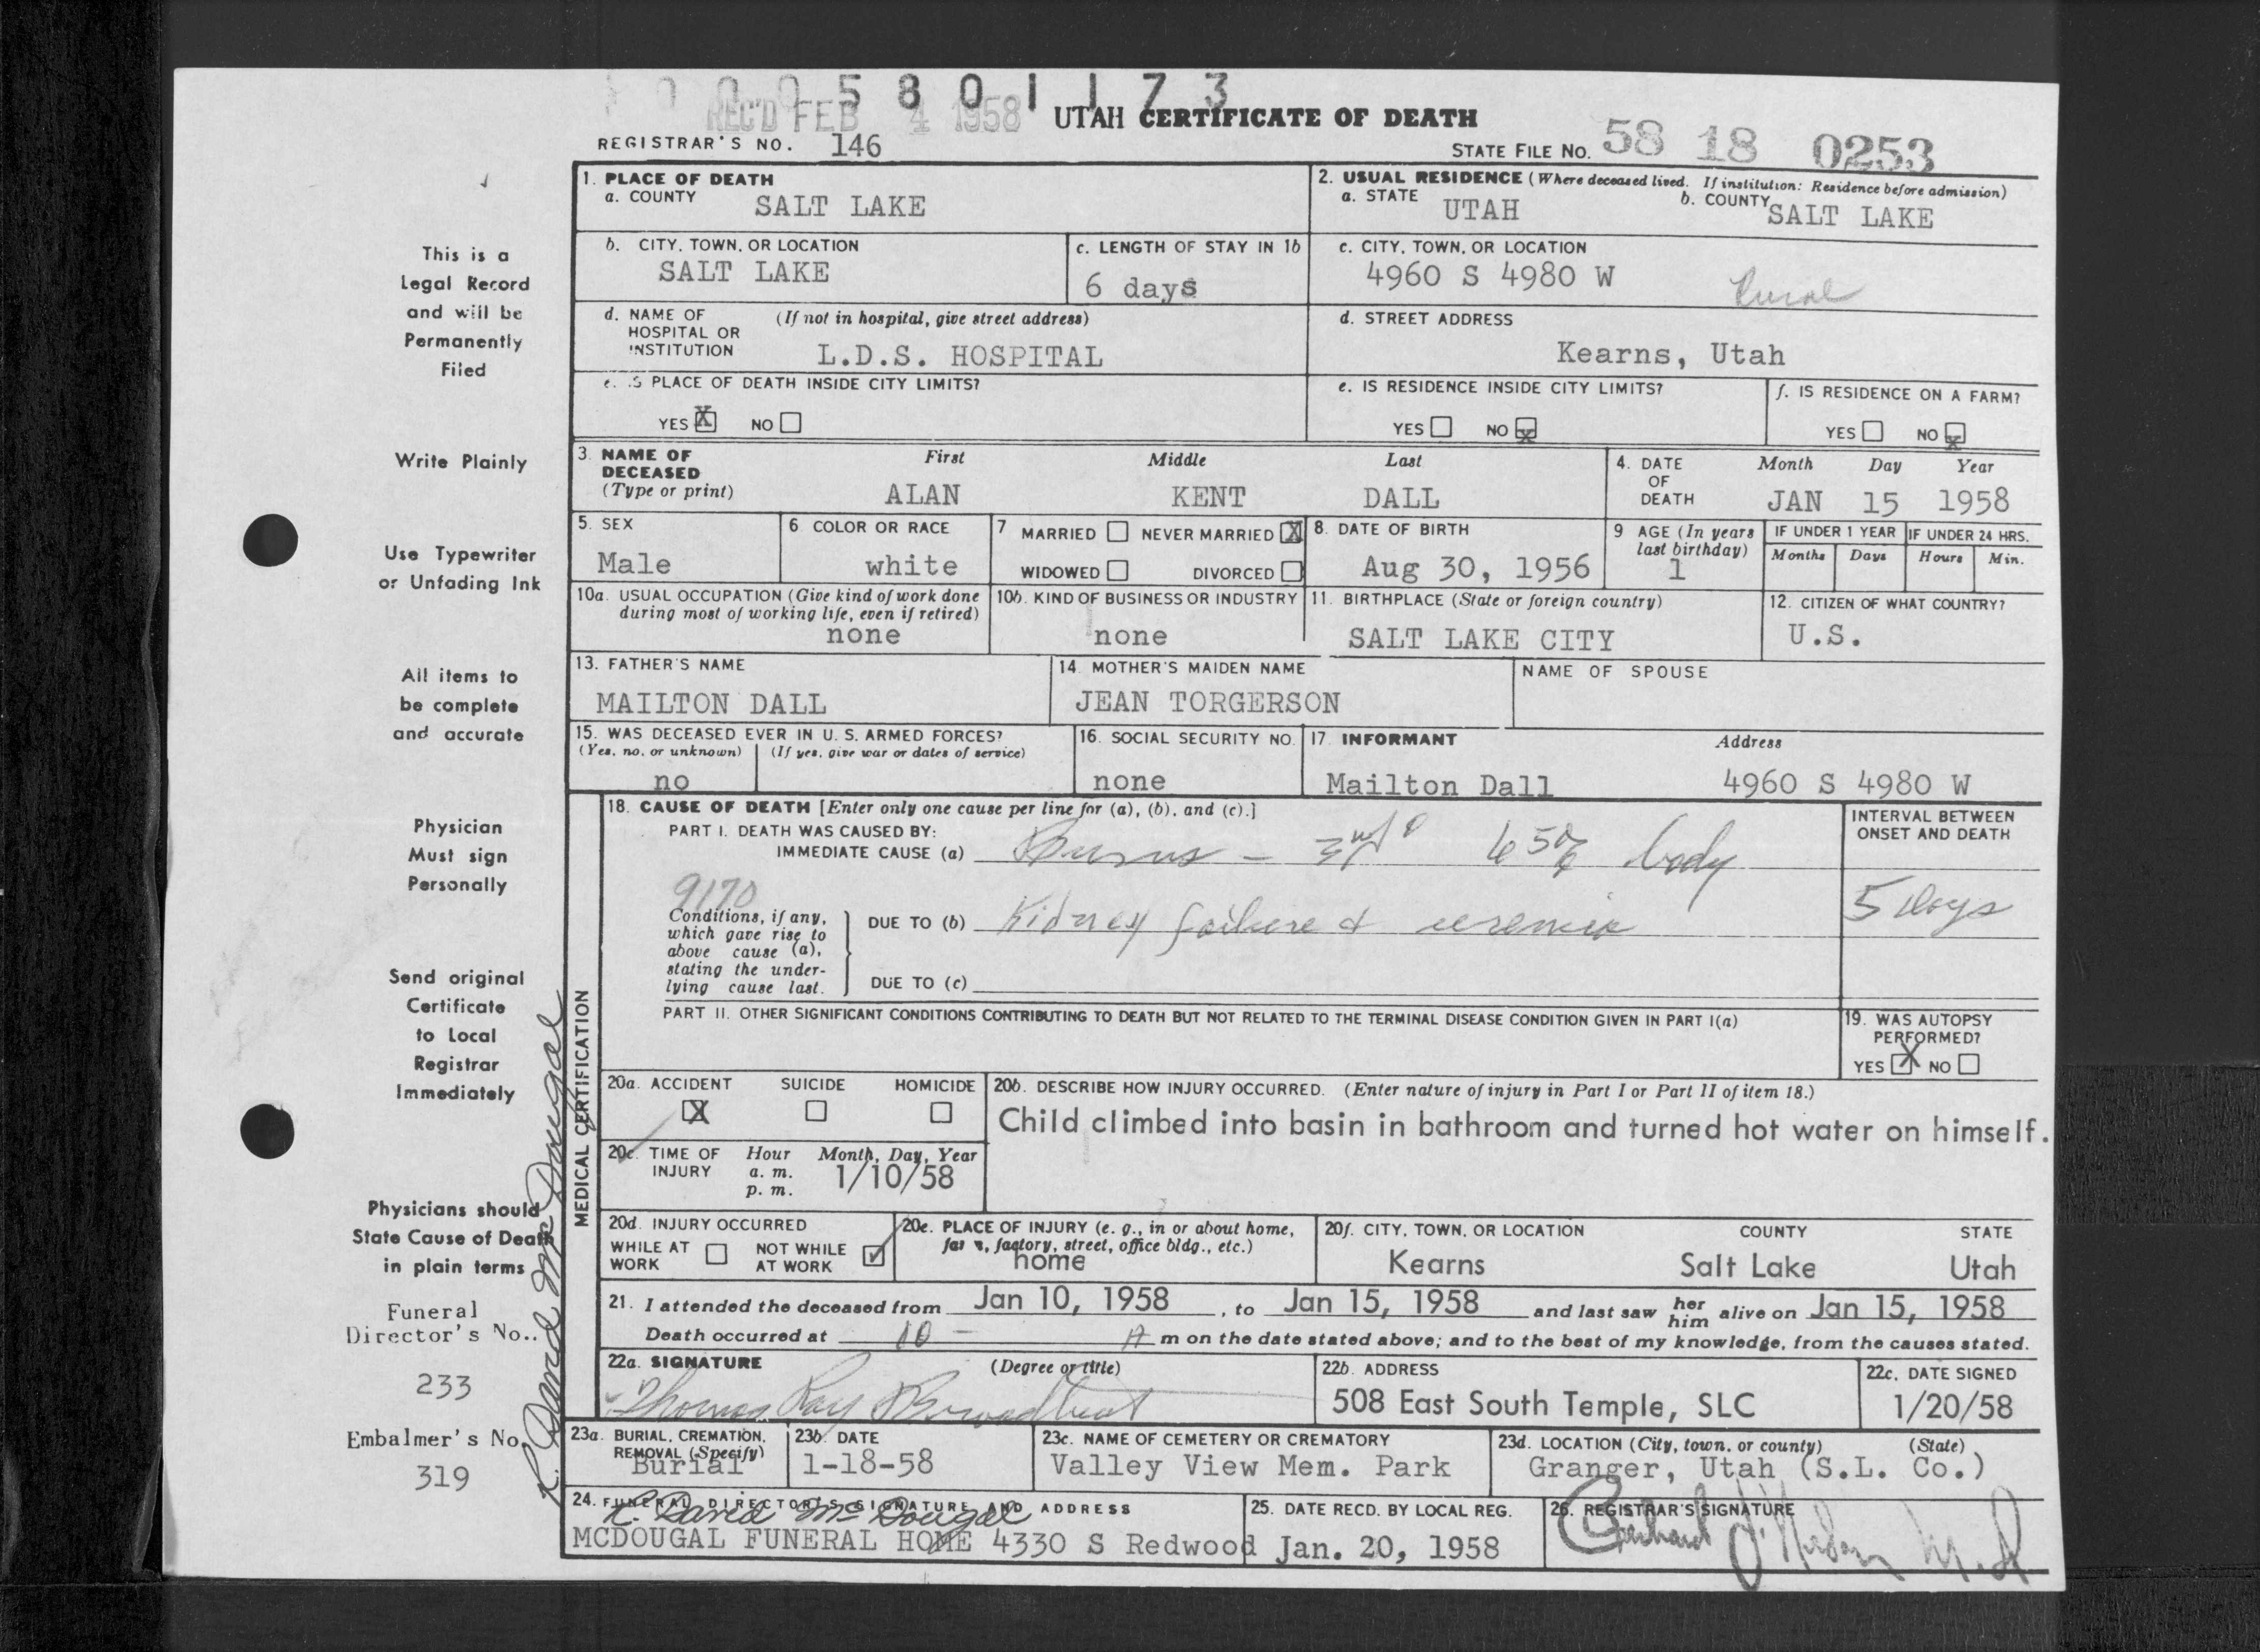 0 0 0 5 8 0 1 1 7 3
REC'D FEB 4 1958 UTAH CERTIFICATE OF DEATH
REGISTRAR'S NO. 146
STATE FILE NO. 58 18 0253
1. PLACE OF DEATH
a. COUNTY SALT LAKE
2. USUAL RESIDENCE (Where deceased lived. If institution: Residence before admission)
a. STATE UTAH b. COUNTY SALT LAKE
b. CITY, TOWN, OR LOCATION
SALT LAKE
c. LENGTH OF STAY IN 1b
6 days
c. CITY, TOWN, OR LOCATION
4960 S 4980 W Rural
d. NAME OF HOSPITAL OR INSTITUTION (If not in hospital, give street address)
L.D.S. HOSPITAL
d. STREET ADDRESS
Kearns, Utah
e. IS PLACE OF DEATH INSIDE CITY LIMITS?
YES X NO
e. IS RESIDENCE INSIDE CITY LIMITS?
YES NO X
f. IS RESIDENCE ON A FARM?
YES NO X
3. NAME OF DECEASED (Type or print)
First Middle Last
ALAN KENT DALL
4. DATE OF DEATH
Month Day Year
JAN 15 1958
5. SEX
Male
6 COLOR OR RACE
white
7 MARRIED NEVER MARRIED X
WIDOWED DIVORCED
8. DATE OF BIRTH
Aug 30, 1956
9 AGE (In years last birthday)
1
IF UNDER 1 YEAR
Months Days
IF UNDER 24 HRS.
Hours Min.
10a. USUAL OCCUPATION (Give kind of work done during most of working life, even if retired)
none
10b. KIND OF BUSINESS OR INDUSTRY
none
11. BIRTHPLACE (State or foreign country)
SALT LAKE CITY
12. CITIZEN OF WHAT COUNTRY?
U.S.
13. FATHER'S NAME
MAILTON DALL
14. MOTHER'S MAIDEN NAME
JEAN TORGERSON
NAME OF SPOUSE
15. WAS DECEASED EVER IN U. S. ARMED FORCES?
(Yes, no, or unknown) (If yes, give war or dates of service)
no
16. SOCIAL SECURITY NO.
none
17. INFORMANT Address
Mailton Dall 4960 S 4980 W
MEDICAL CERTIFICATION
18. CAUSE OF DEATH [Enter only one cause per line for (a), (b), and (c).]
PART I. DEATH WAS CAUSED BY:
IMMEDIATE CAUSE (a) Burns - 3rd° 65% body
INTERVAL BETWEEN ONSET AND DEATH
9170
Conditions, if any, which gave rise to above cause (a), stating the underlying cause last.
DUE TO (b) Kidney failure & uremia
5 Days
DUE TO (c)
PART II. OTHER SIGNIFICANT CONDITIONS CONTRIBUTING TO DEATH BUT NOT RELATED TO THE TERMINAL DISEASE CONDITION GIVEN IN PART I(a)
19. WAS AUTOPSY PERFORMED?
YES X NO
20a. ACCIDENT SUICIDE HOMICIDE
X
20b. DESCRIBE HOW INJURY OCCURRED. (Enter nature of injury in Part I or Part II of item 18.)
Child climbed into basin in bathroom and turned hot water on himself.
20c. TIME OF INJURY
Hour Month, Day, Year
a. m.
p. m.
1/10/58
20d. INJURY OCCURRED
WHILE AT WORK NOT WHILE AT WORK ✓
20e. PLACE OF INJURY (e. g., in or about home, farm, factory, street, office bldg., etc.)
home
20f. CITY, TOWN, OR LOCATION COUNTY STATE
Kearns Salt Lake Utah
21. I attended the deceased from Jan 10, 1958, to Jan 15, 1958 and last saw her him alive on Jan 15, 1958
Death occurred at 10 - A m on the date stated above; and to the best of my knowledge, from the causes stated.
22a. SIGNATURE (Degree or title)
Thomas Ray Broadbent
22b. ADDRESS
508 East South Temple, SLC
22c. DATE SIGNED
1/20/58
23a. BURIAL, CREMATION, REMOVAL (Specify)
Burial
23b. DATE
1-18-58
23c. NAME OF CEMETERY OR CREMATORY
Valley View Mem. Park
23d. LOCATION (City, town, or county) (State)
Granger, Utah (S.L. Co.)
24. FUNERAL DIRECTOR'S SIGNATURE AND ADDRESS
R. David McDougal
MCDOUGAL FUNERAL HOME 4330 S Redwood
25. DATE RECD. BY LOCAL REG.
Jan. 20, 1958
26. REGISTRAR'S SIGNATURE
This is a
Legal Record
and will be
Permanently
Filed
Write Plainly
Use Typewriter
or Unfading Ink
All items to
be complete
and accurate
Physician
Must sign
Personally
Send original
Certificate
to Local
Registrar
Immediately
Physicians should
State Cause of Death
in plain terms
Funeral
Director's No..
233
Embalmer's No.
319
R. David McDougal